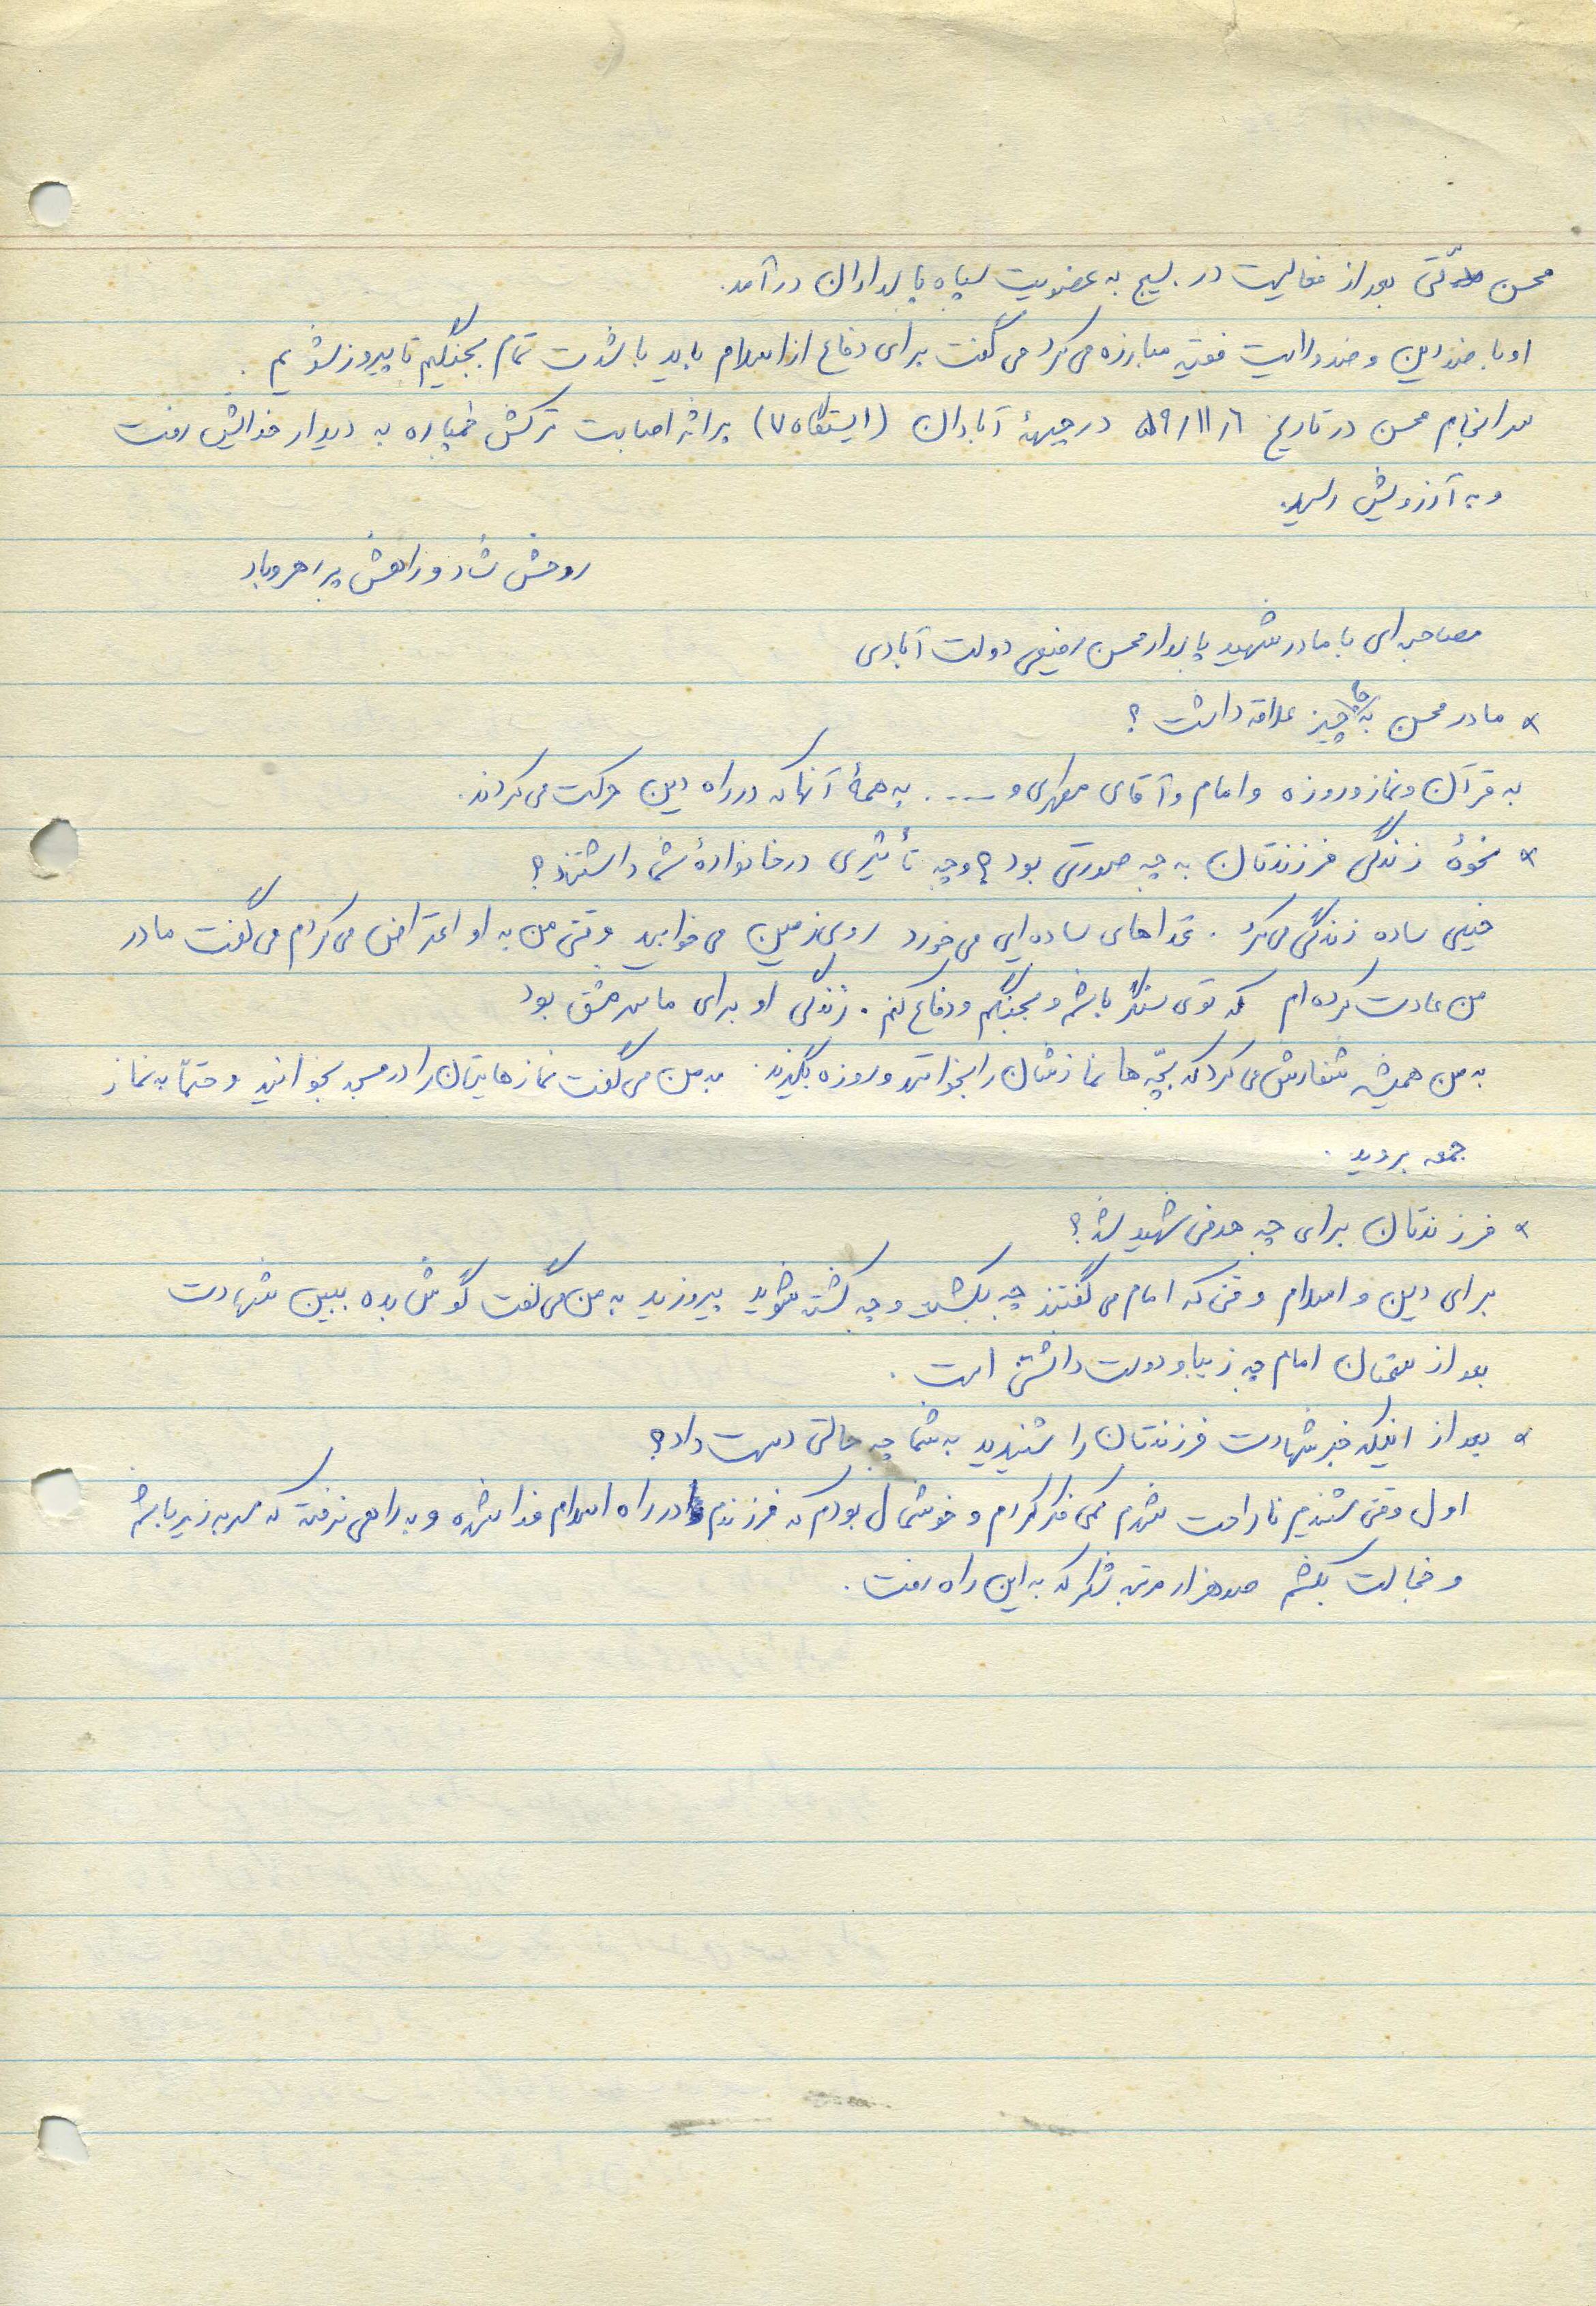 محسن مدّتی بعد از فعالیت در بسیج به عضویت سپاه پاسداران درآمد.
او با ضد دین و ضد ولایت فقیه مبارزه می کرد می گفت برای دفاع از اسلام باید با شدت تمام بجنگیم تا پیروز شویم .
سرانجام محسن در تاریخ ۵۹/۱۱/۶ در جبههٔ آبادان (ایستگاه ۷) براثر اصابت ترکش خمپاره به دیدار خدایش رفت
و به آرزویش رسید.
روحش شاد و راهش پر رهرو باد
مصاحبه ای با مادر شهید پاسدار محسن رفیعی دولت آبادی
* مادر محسن به چه چیز علاقه داشت ؟
به قرآن و نماز و روزه و امام و آقای مطهری و .... به همهٔ آنها که در راه دین حرکت می کردند.
* نحوهٔ زندگی فرزندتان به چه صورتی بود ؟ و چه تأثیری در خانوادهٔ شما داشتند؟
خیلی ساده زندگی می کرد . غذاهای ساده ای می خورد روی زمین می خوابید وقتی من به او اعتراض می کردم می گفت مادر
من عادت کرده ام که توی سنگر باشم و بجنگم و دفاع کنم . زندگی او برای ما سرمشق بود
به من همیشه سفارش می کرد که بچّه ها نمازشان را بخوانند و روزه بگیرند. به من می گفت نمازهایتان را در مسجد بخوانید و حتماً به نماز
جمعه بروید .
* فرزندتان برای چه هدفی شهید شد؟
برای دین و اسلام وقتی که امام می گفتند چه بکشید و چه کشته شوید پیروزید به من می گفت گوش بده ببین شهادت
بعد از سخنان امام چه زیبا و دوست داشتنی است .
* بعد از اینکه خبر شهادت فرزندتان را شنیدید به شما چه حالتی دست داد؟
اول وقتی شنیدم ناراحت شدم کمی فکر کردم و خوشحال بودم که فرزندم در راه اسلام فدا شده و به راهی نرفته که سر به زیر باشم
و خجالت بکشم صد هزار مرتبه شکر که به این راه رفت .